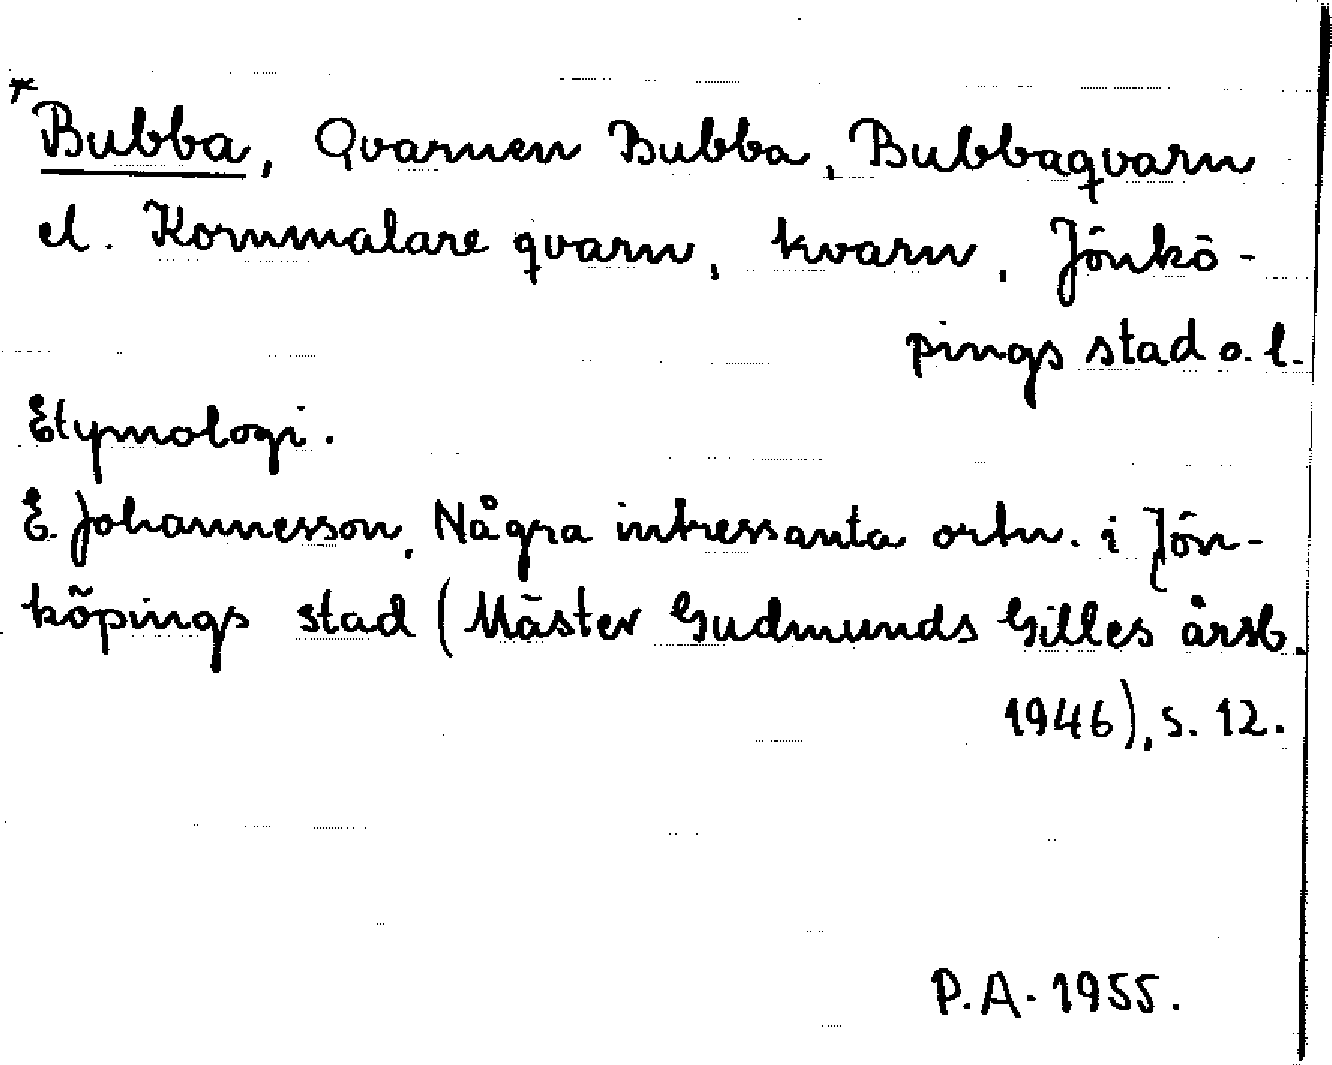 *Bubba, Qvarnen Bubba, Bubbaqvarn
el. Kornmalare qvarn, kvarn, Jönkö-
pings stad o. l.
Etymologi.
E. Johannesson, Några intressanta ortn. i Jön-
köpings stad (Mäster Gudmunds Gilles årsb.
1946), s. 12.
P.A. 1955.